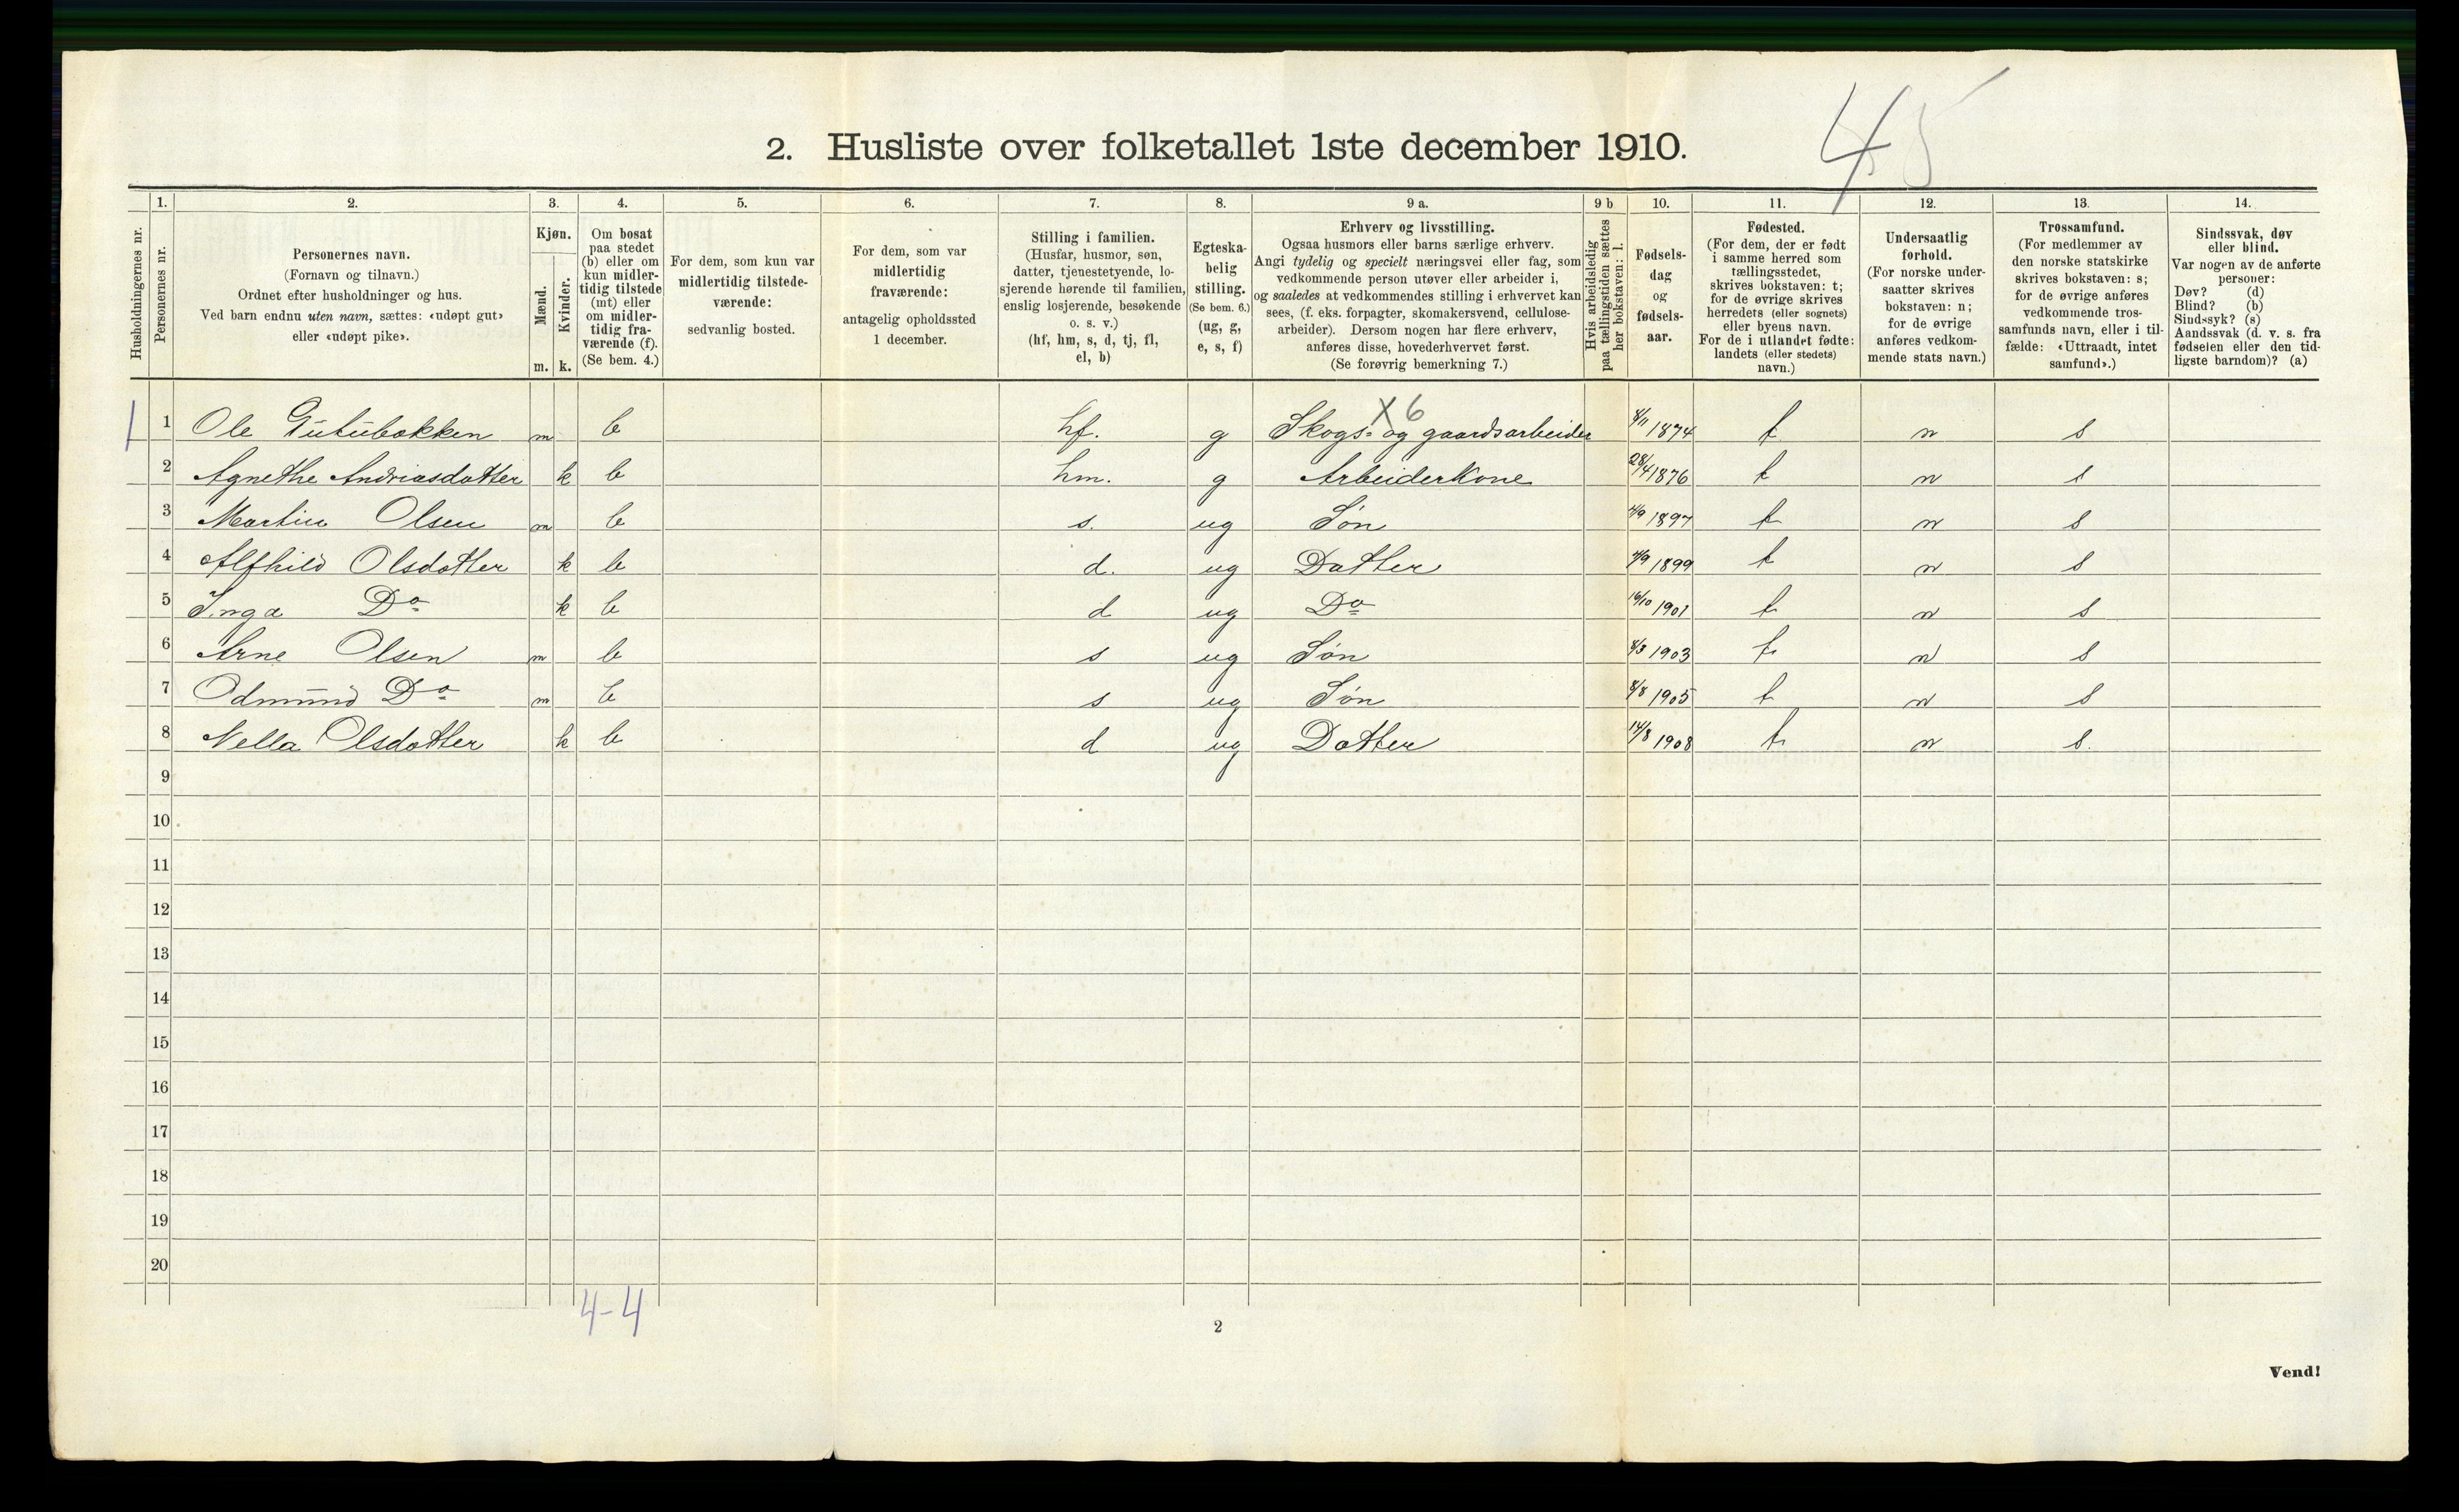 45
2. Husliste over folketallet 1ste december 1910.
Husholdningernes nr.
1.
Personernes nr.
2.
Personernes navn.
(Fornavn og tilnavn.)
Ordnet efter husholdninger og hus.
Ved barn endnu uten navn, sættes: «udøpt gut»
eller «udøpt pike».
3.
Kjøn.
Mænd.
Kvinder.
m. k.
4.
Om bosat
paa stedet
(b) eller om
kun midler-
tidig tilstede
(mt) eller
om midler-
tidig fra-
værende (f).
(Se bem. 4.)
5.
For dem, som kun var
midlertidig tilstede-
værende:
sedvanlig bosted.
6.
For dem, som var
midlertidig
fraværende:
antagelig opholdssted
1 december.
7.
Stilling i familien.
(Husfar, husmor, søn,
datter, tjenestetyende, lo-
sjerende hørende til familien,
enslig losjerende, besøkende
o. s. v.)
(hf, hm, s, d, tj, fl,
el, b)
8.
Egteska-
belig
stilling.
(Se bem. 6.)
(ug, g,
e, s, f)
9 a.
Erhverv og livsstilling.
Ogsaa husmors eller barns særlige erhverv.
Angi tydelig og specielt næringsvei eller fag, som
vedkommende person utøver eller arbeider i,
og saaledes at vedkommendes stilling i erhvervet kan
sees, (f. eks. forpagter, skomakersvend, cellulose-
arbeider). Dersom nogen har flere erhverv,
anføres disse, hovederhvervet først.
(Se forøvrig bemerkning 7.)
9 b
Hvis arbeidsledig
paa tællingstiden sættes
her bokstaven: l.
10.
Fødsels-
dag
og
fødsels-
aar.
11.
Fødested.
(For dem, der er født
i samme herred som
tællingsstedet,
skrives bokstaven: t;
for de øvrige skrives
herredets (eller sognets)
eller byens navn.
For de i utlandet fødte:
landets (eller stedets)
navn.)
12.
Undersaatlig
forhold.
(For norske under-
saatter skrives
bokstaven: n;
for de øvrige
anføres vedkom-
mende stats navn.)
13.
Trossamfund.
(For medlemmer av
den norske statskirke
skrives bokstaven: s;
for de øvrige anføres
vedkommende tros-
samfunds navn, eller i til-
fælde: «Uttraadt, intet
samfund».)
14.
Sindssvak, døv
eller blind.
Var nogen av de anførte
personer:
Døv? (d)
Blind? (b)
Sindssyk? (s)
Aandssvak (d. v. s. fra
fødselen eller den tid-
ligste barndom)? (a)
X6
1 1 Ole Gutubakken m b hf. g Skogs- og gaardsarbeider 4/11 1874 t n s
2 Agnethe Andriasdatter k b hm. g Arbeiderkone 28/4 1876 t n s
3 Martin Olsen m b s. ug Søn 1897 t n s
4 Alfhild Olsdatter k b d. ug Datter 1899 t n s
5 Inga Do k b d ug Do 16/10 1901 t n s
6 Arne Olsen m b s ug Søn 1903 t n s
7 Odmund Do m b s ug Søn 8/8 1905 t n s
8 Nella Olsdatter k b d ug Datter 14/8 1908 t n s.
9
10
11
12
13
14
15
16
17
18
19
20
4-4
2
Vend!